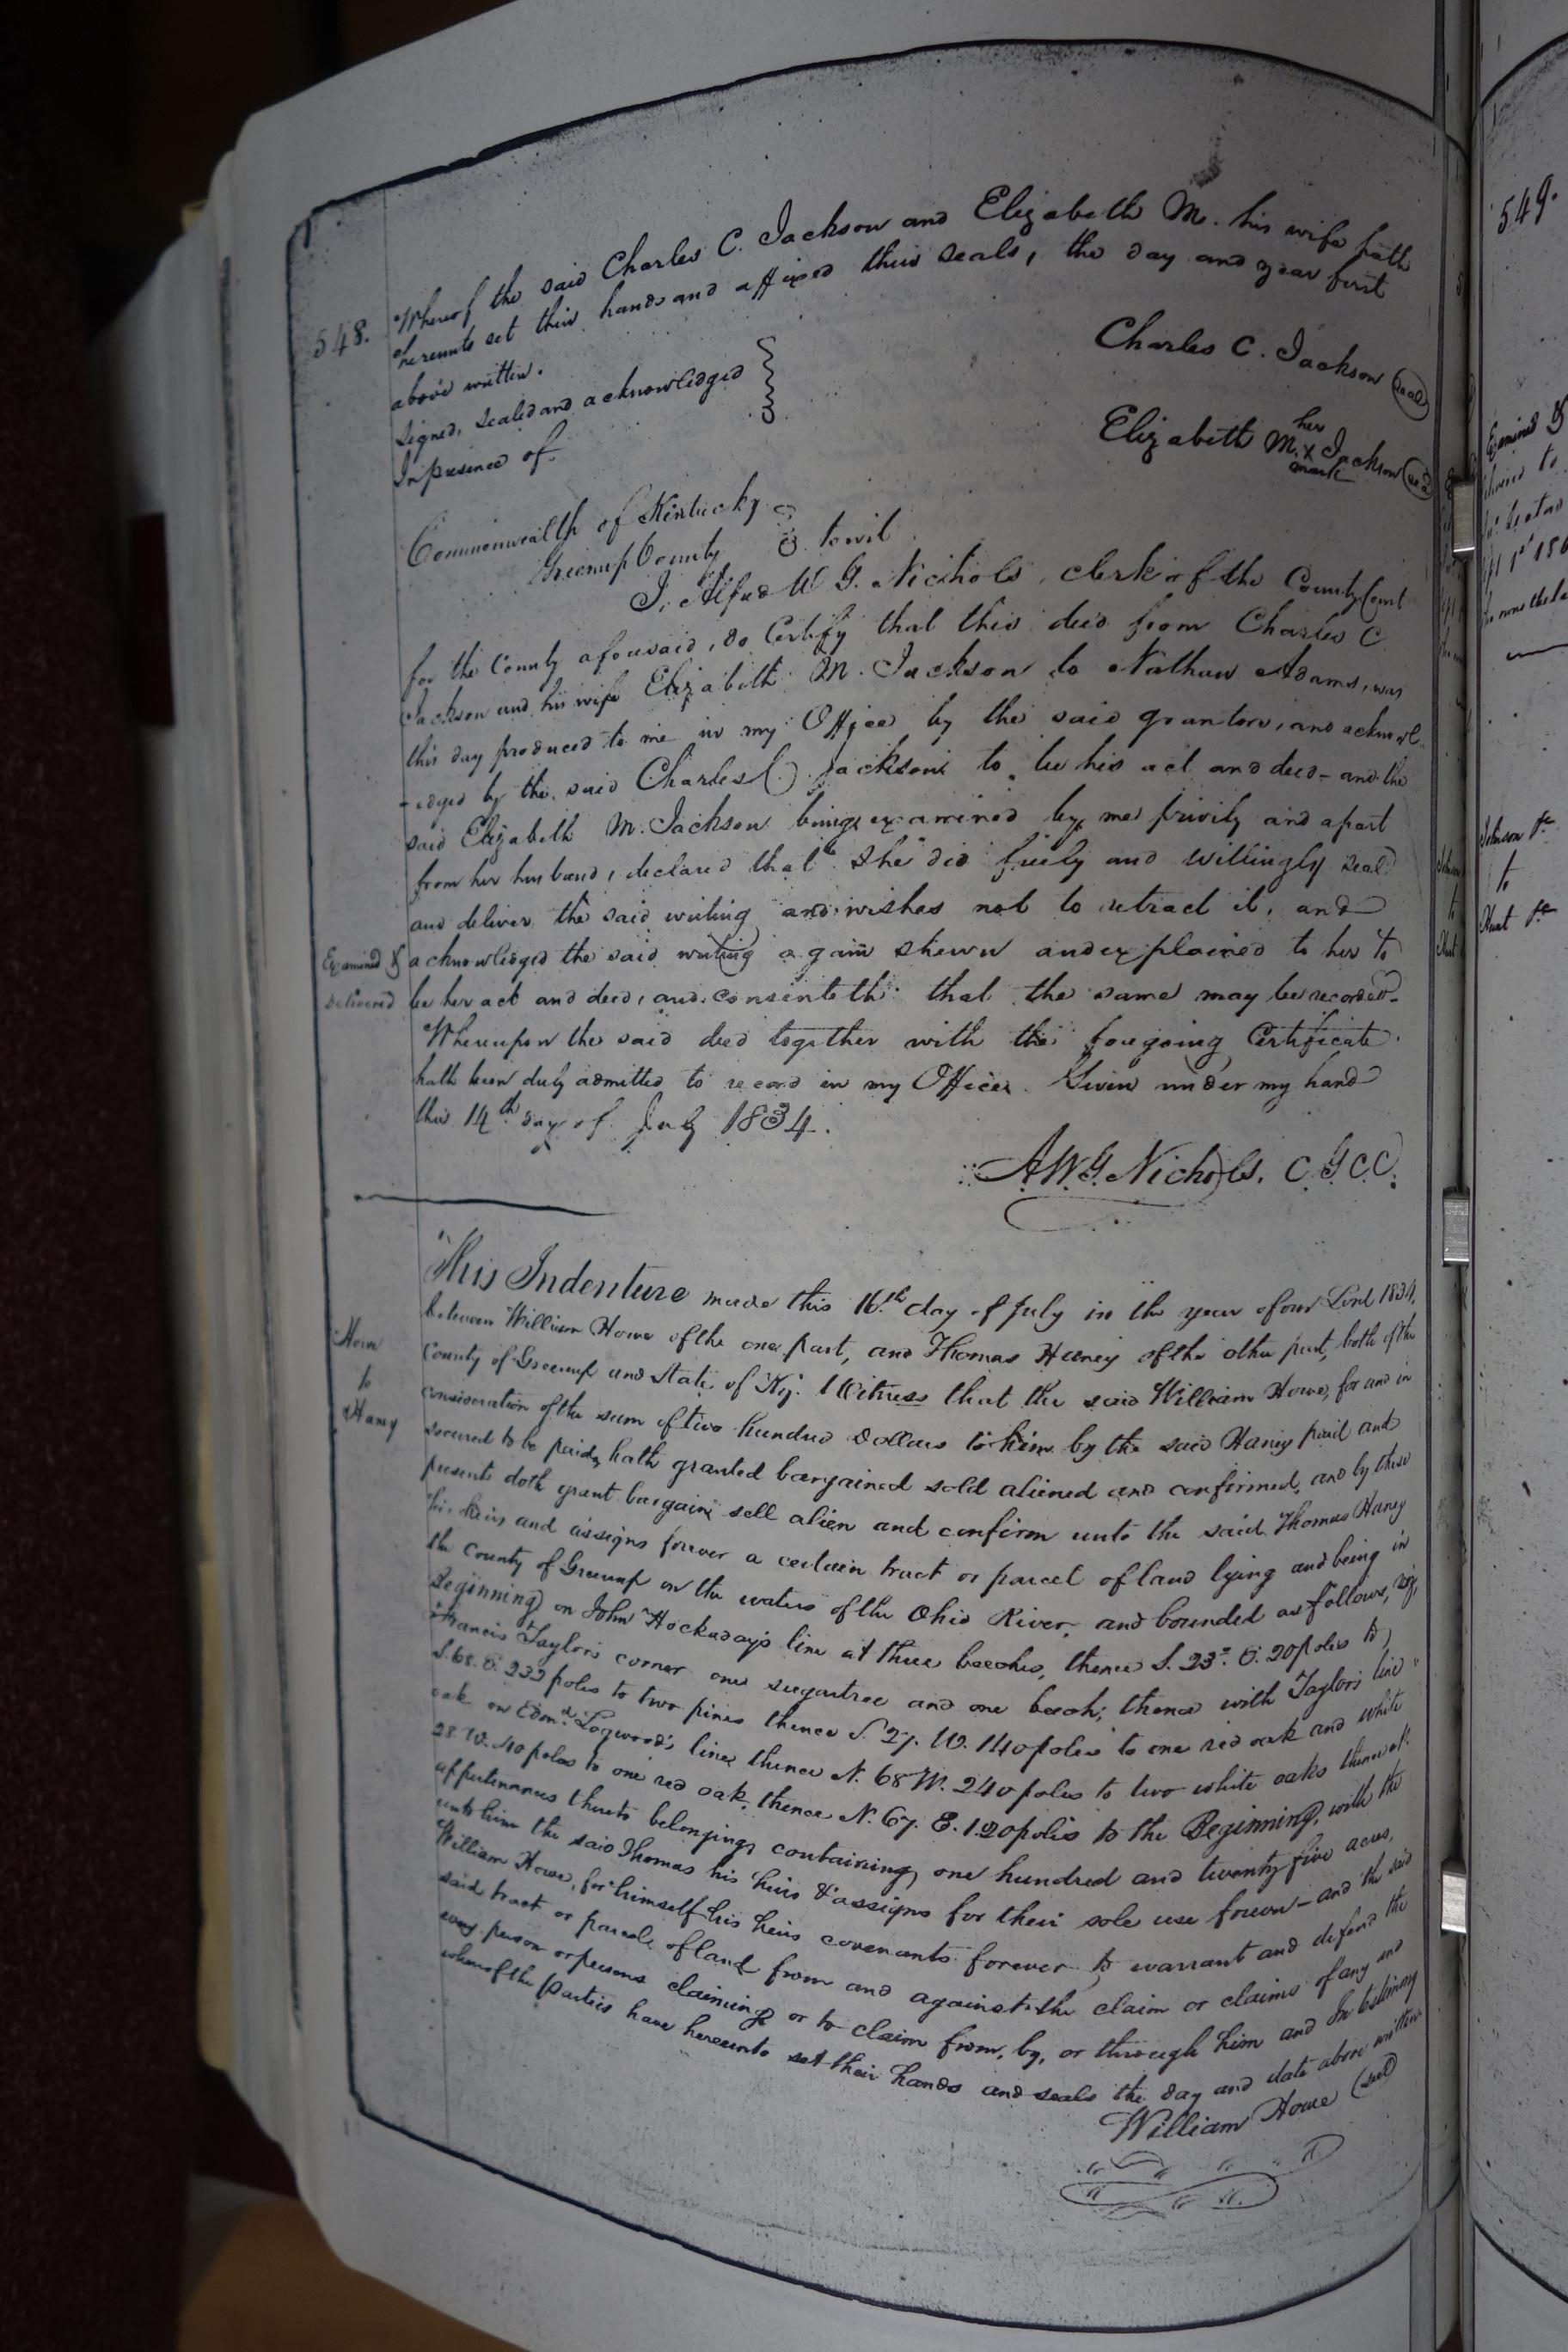 548.
Whereof the said Charles C. Jackson and Elizabeth M. his wife hath
hereunto set their hands and affixed their seals, the day and year first
above written.
Signed, Sealed and acknowledged
In presence of.
Charles C. Jackson (seal)
her
Elizabeth M. X Jackson (seal)
mark
Commonwealth of Kentucky
Greenup County towit
I, Alfred W G. Nichols, clerk of the County Court
for the County aforesaid, do Certify that this deed from Charles C
Jackson and his wife Elizabeth M. Jackson to Nathan Adams, was
this day produced to me in my Office by the said grantors, and acknowl
-edged by the said Charles C. Jackson to be his act and deed - and the
said Elizabeth M. Jackson being examined by me privily and apart
from her husband, declared that she did freely and willingly seal
and deliver the said writing and wishes not to retract it, and
Examined &
delivered
acknowledged the said writing again shewn and explained to her to
be her act and deed, and consenteth that the same may be recorded.
Whereupon the said deed together with the foregoing Certificate
hath been duly admitted to record in my Office. Given under my hand
this 14th day of July 1834.
A.W.G. Nichols, C.G.C.C.
Howe
to
Haney
This Indenture made this 16th day of July in the year of our Lord 1834,
between William Howe of the one part, and Thomas Haney of the other part, both of the
County of Greenup and State of Ky. Witness that the said William Howe, for and in
consideration of the sum of two hundred dollars to him by the said Haney paid and
secured to be paid, hath granted bargained sold aliened and confirmed, and by these
presents doth grant bargain sell alien and confirm unto the said Thomas Haney
his heirs and assigns forever a certain tract or parcel of land lying and being in
the County of Greenup on the waters of the Ohio River, and bounded as follows, viz,
Beginning on John Hockaday's line at three beeches, thence S. 23° E. 20 poles to
Francis Taylors corner one sugartree and one beech; thence with Taylors line
S. 68. E. 232 poles to two pines thence S. 27. W. 140 poles to one red oak and white
oak on Edmd Logwood's line, thence N. 68 W. 240 poles to two white oaks thence N.
28. W. 40 poles to one red oak, thence N. 67. E. 120 poles to the Beginning, with the
appurtenances thereto belonging, containing one hundred and twenty five acres,
unto him the said Thomas his heirs & assigns for their sole use forever - and the said
William Howe, for himself his heirs covenants forever to warrant and defend the
said tract or parcel of land from and against the claim or claims of any and
every person or persons claiming or to claim from, by, or through him and In testimony
whereof the parties have hereunto set their hands and seals the day and date above written
William Howe (seal)
549.
Examined &
to
Johnson &c
to
Hunt &c